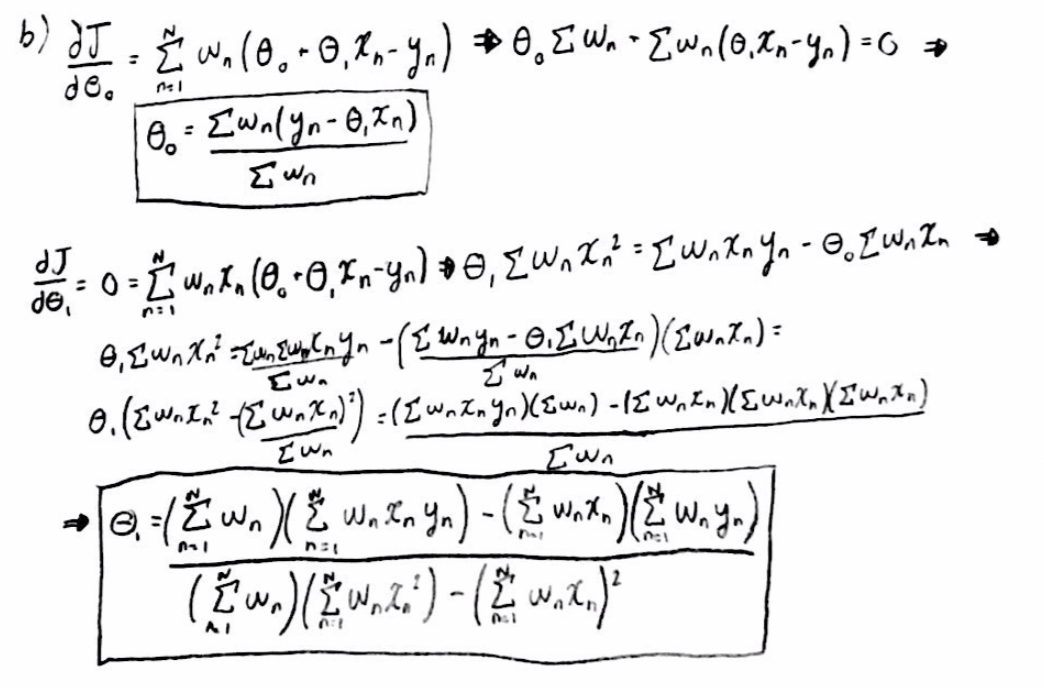 b) dJ/dθ₀ = Σ_{n=1}^{N} wₙ(θ₀ + θ₁xₙ - yₙ) ⇒ θ₀ Σ wₙ + Σ wₙ(θ₁xₙ - yₙ) = 0 ⇒
θ₀ = Σ wₙ(yₙ - θ₁xₙ) / Σ wₙ
dJ/dθ₁ = 0 = Σ_{n=1}^{N} wₙxₙ(θ₀ + θ₁xₙ - yₙ) ⇒ θ₁ Σ wₙxₙ² = Σ wₙxₙyₙ - θ₀ Σ wₙxₙ ⇒
θ₁ Σ wₙxₙ² = Σwₙ Σwₙxₙyₙ / Σ wₙ - (Σ wₙyₙ - θ₁ Σ wₙxₙ / Σ wₙ)(Σ wₙxₙ) =
θ₁(Σ wₙxₙ² - (Σ wₙxₙ)² / Σ wₙ) = (Σ wₙxₙyₙ)(Σ wₙ) - (Σ wₙxₙ)(Σ wₙxₙ)(Σ wₙxₙ) / Σ wₙ
⇒ θ₁ = (Σ_{n=1}^{N} wₙ)(Σ_{n=1}^{N} wₙxₙyₙ) - (Σ_{n=1}^{N} wₙxₙ)(Σ_{n=1}^{N} wₙyₙ) / (Σ_{n=1}^{N} wₙ)(Σ_{n=1}^{N} wₙxₙ²) - (Σ_{n=1}^{N} wₙxₙ)²